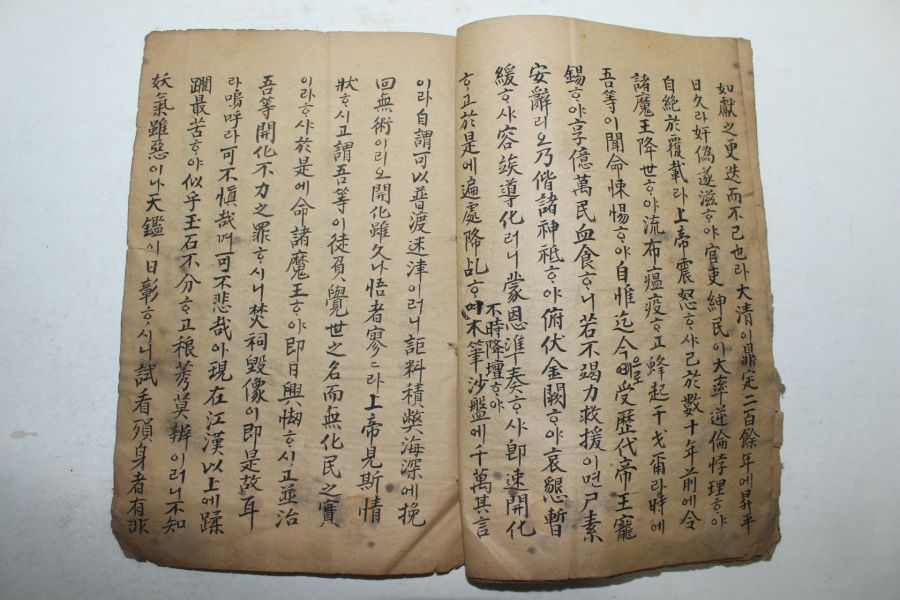 如獻之更迭而不已也라大清이鼎定二百餘年에昇平
日久라奸偽遂滋ᄒᆞ야官吏紳民이大率逆倫悖理ᄒᆞ야
自絶於覆載라上帝震怒ᄒᆞ샤已於數十年前에令
諸魔王降世ᄒᆞ야流布瘟疫ᄒᆞ고蜂起干戈爾라時에
吾等이聞命悚惕ᄒᆞ야自惟迄今에受歷代帝王寵
錫ᄒᆞ야享億萬民血食ᄒᆞ니若不竭力救援이면尸素
安辭리오乃偕諸神祗ᄒᆞ야俯伏金闕ᄒᆞ야哀懇暫
緩ᄒᆞ샤容竢導化러니蒙恩准奏ᄒᆞ샤卽速開化
ᄒᆞ고於是에遍處降乩ᄒᆞ며木筆沙盤에千萬其言
不時降壇ᄒᆞ야
이라自謂可以普渡迷津이러니詎料積獘海深에挽
回無術이리오開化雖久나悟者寥々라上帝見斯情
狀ᄒᆞ시고謂吾等이徒負覺世之名而無化民之實
이라ᄒᆞ샤於是에命諸魔王ᄒᆞ야卽日興㓥ᄒᆞ시고並治
吾等開化不力之罪ᄒᆞ시니焚祠毀像이卽是故耳
라嗚呼라可不愼哉며可不悲哉아現在江漢以上에蹂
躙最苦ᄒᆞ야似乎玉石不分ᄒᆞ고稂莠莫辨이러니不知
妖氣雖惡이나天鑑이日彰ᄒᆞ시니試看殞身者有非